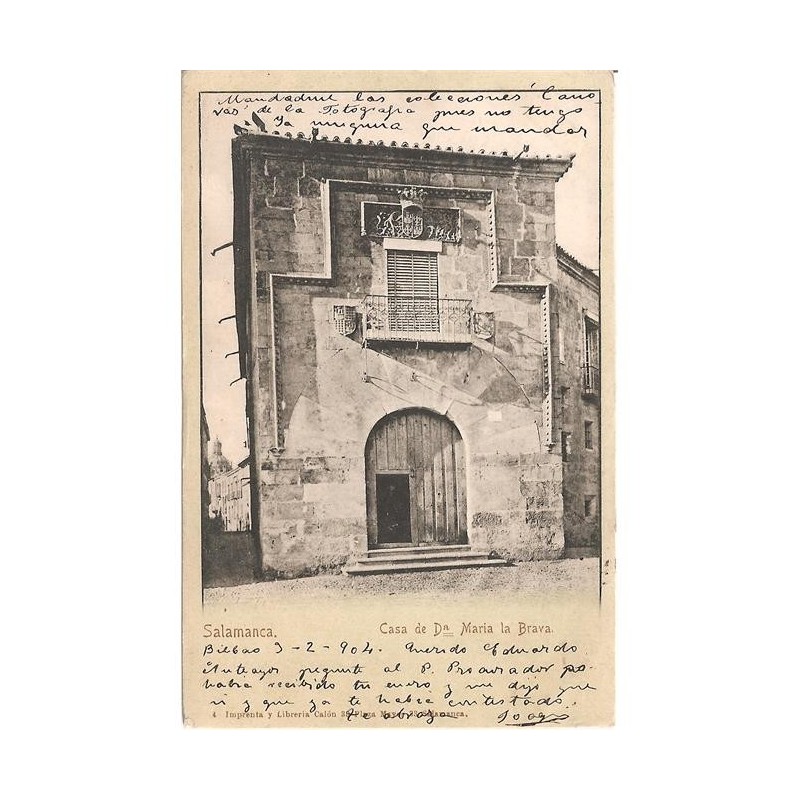 Mandadme las colecciones "Cano
vas" de la Fotografia pues no tengo
Ya ninguna que mandar
Salamanca.
Casa de Dª Maria la Brava.
Bilbao 3-2-904. Querido Eduardo
Anteayer pregunte al P. Procurador
habia recibido tu envio y me dijo que
si y que ya te habia contestado.
Te abraza
4 Imprenta y Libreria Calón 33 Plaza Mayor 33 Salamanca.